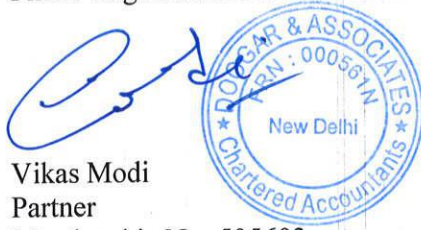 DOOGAR & ASSOCIATES
FRN : 000561N
New Delhi
Chartered Accountants
Vikas Modi
Partner